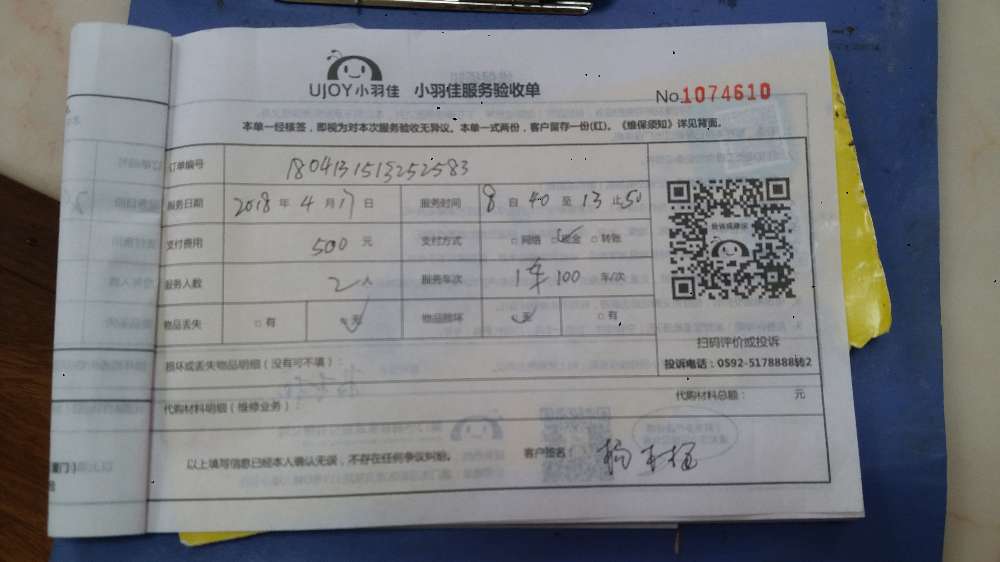 UJOY小羽佳 小羽佳服务验收单
No.1074610
本单一经核签，即视为对本次服务验收无异议。本单一式两份，客户留存一份(红)。《维保须知》详见背面。
订单编号 1804131513252583
服务日期 2018 年 4 月 17 日 服务时间 8 自 40 至 13 止 50
支付费用 500 元 支付方式 □网络 □现金 □转账
服务人数 2 人 服务车次 1车 100 车/次
物品丢失 □有 □无 物品损坏 □无 □有
投诉或建议
扫码评价或投诉
投诉电话：0592-5178888转2
损坏或丢失物品明细（没有可不填）：
代购材料明细（维修业务）： 代购材料总额： 元
以上填写信息已经本人确认无误，不存在任何争议纠纷。 客户签名： 杨